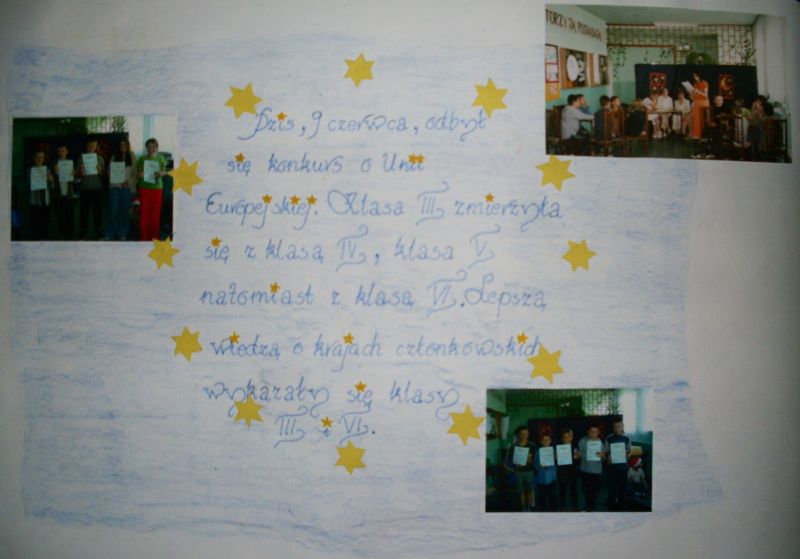 TORZY JĄ
Dziś, 9 czerwca, odbył
się konkurs o Unii
Europejskiej. Klasa III zmierzyła
się z klasą IV, klasa V
natomiast z klasą VI. Lepszą
wiedzą o krajach członkowskich
wykazały się klasy
III i VI.